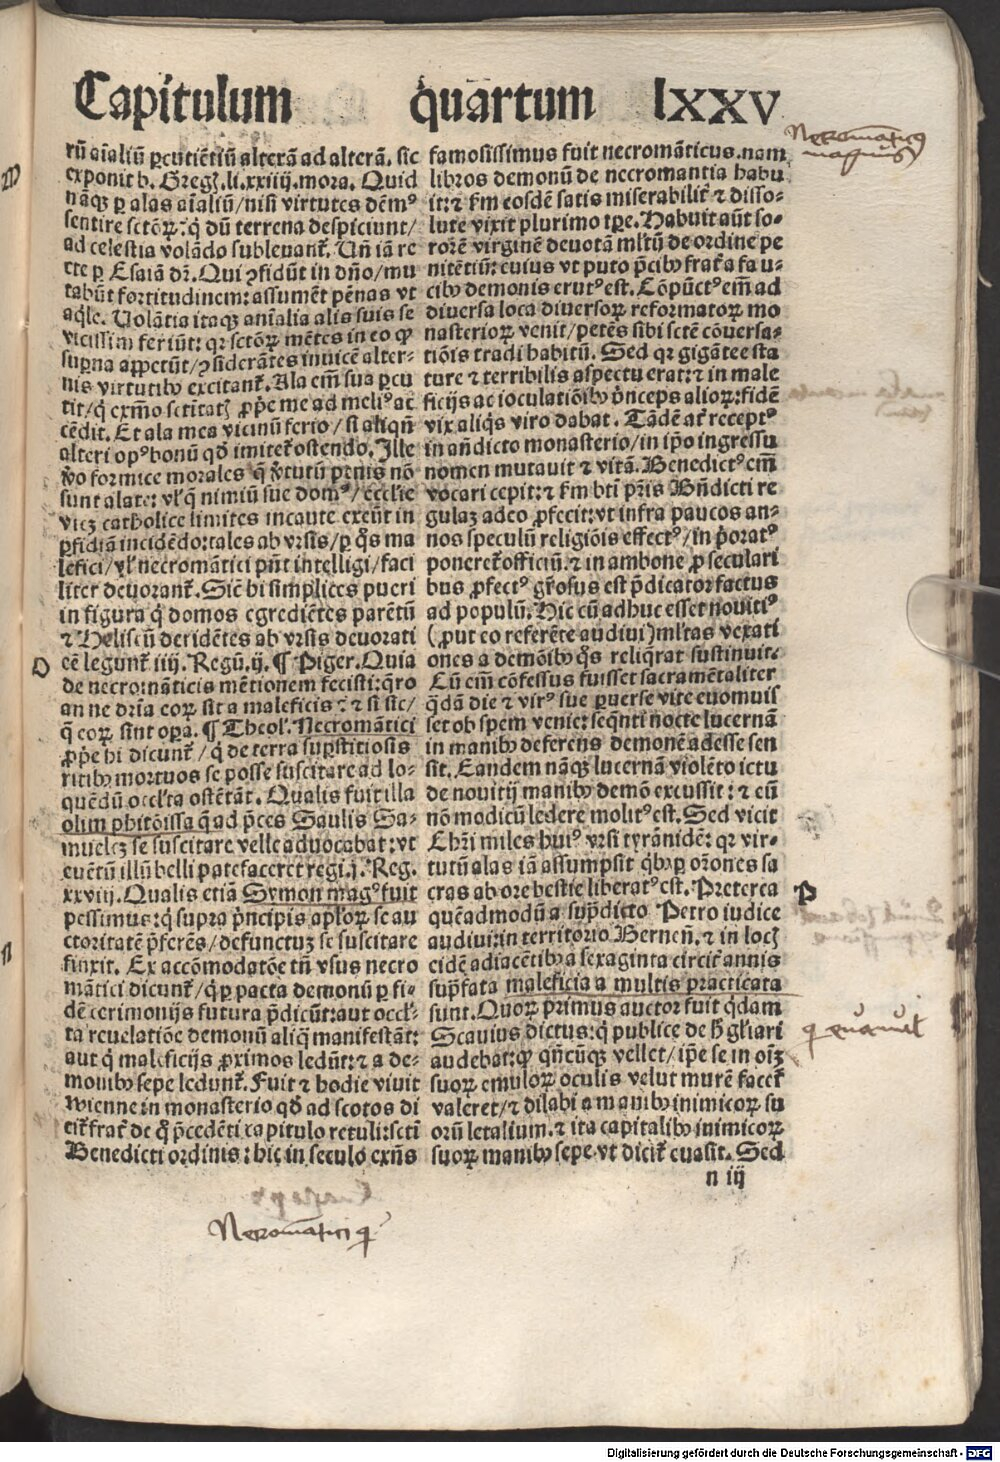 Capitulum quartum lxxv
rū aīaliū ꝑcutiētiū alterā ad alterā. sic
exponit b. Greg. li. xxiiij. mora. Quid
naqꝫ ꝑ alas aīaliū/nisi virtutes dēmꝰ
sentire sctōꝝ: q̇ dū terrena despiciunt/
ad celestia volādo subleuant᷑. Uñ iā re
cte ꝑ Esaiā dr̄. Qui ꝯfidūt in dño/mu
tabūt fortitudinem: assumēt pēnas vt
aq̄le. Uolātia itaqꝫ anīalia alis suis se
vicissim feriūt: qꝛ sctōꝝ mētes in eo ꝙ
suꝑna appetūt/ꝯsiderātes inuicē alter⸗
nis virtutibꝰ excitant᷑. Ala em̄ sua ꝑcu
tit/q̇ exm̄o sctitatꝭ ꝓpe me ad meliꝰ ac
cēdit. Et ala mea vicinū ferio/si aliqñ
alteri opꝰ bonū qd̄ imitet᷑ ostendo. Ille
ꝟo formice morales q̄ ꝟtutū pēnis nō
sunt alate: vl̓ q̄ nimiū sue domꝰ/eccl̓ie
viꝫ catholice limites incaute exeūt in
ꝑfidiā incidēdo: tales ab vrsis/ꝑ q̊s ma
lefici/vl̓ necromātici pn̄t intelligi/faci
liter deuorant᷑. Sic̄ hi simplices pueri
in figura q̇ domos egrediētes parētū
⁊ Heliseū deridētes ab vrsis deuorati
eē legunt᷑ iiij. Regū. ij. ¶ Piger. Quia
de necromāticis mētionem fecisti: q̄ro
an ne dr̄ia eoꝝ sit a maleficis ⁊ ⁊ si sic/
q̄ eoꝝ sint oꝑa. ¶ Theol̓. Necromātici
ꝓpe hi dicunt᷑/q̇ de terra suꝑstitiosis
ritibꝰ mortuos se posse suscitare ad lo⸗
quēdū occl̓ta ostētāt. Qualis fuit illa
olim phitōissa q̄ ad p̄ces Saulis Sa⸗
muelē se suscitare velle aduocabat: vt
euētū illū belli patefaceret regi. j. Reg.
xxviij. Qualis etiā Symon magꝰ fuit
pessimus: q̇ supra pͥncipis apl̓oꝝ se au
ctoritatē p̄ferēs/defunctuꝫ se suscitare
finxit. Ex accōmodatōe tn̄ vsus necro
mātici dicunt᷑/q̇ ꝑ pacta demonū ꝑ fi⸗
dē cerimonijs futura p̄dicūt: aut occl̓⸗
ta reuelatiōe demonū aliq̄ manifestāt:
aut q̇ maleficijs ꝓximos ledūt: ⁊ a de⸗
monibꝰ sepe ledunt᷑. Fuit ⁊ hodie viuit
wienne in monasterio qd̄ ad scotos di
cit᷑ frat᷑ de q̊ p̄cedēti capitulo retuli: scti
Benedicti ordinis: hic in seculo exn̄s
famosissimus fuit necromāticus. nam
libros demonū de necromantia habu
it: ⁊ ẜm eosdē satis miserabilit᷑ ⁊ disso⸗
lute vixit plurimo tꝑe. Habuit aūt so⸗
rorē virginē deuotā ml̓tū de ordine pe
nitētiū: cuius vt puto p̄cibꝰ frat᷑ a fau⸗
cibꝰ demonis erutꝰ est. Cōpūctꝰ em̄ ad
diuersa loca diuersoꝝ reformatoꝝ mo
nasterioꝝ venit/petēs sibi sctē cōuersa⸗
tiōis tradi habitū. Sed qꝛ gigātee sta
ture ⁊ terribilis aspectu erat: ⁊ in male
ficijs ac ioculatiōibꝰ pͥnceps alioꝝ: fidē
vix aliq̇s viro dabat. Tādē at᷑ receptꝰ
in añdicto monasterio/in ip̄o ingressu
nomen mutauit ⁊ vitā. Benedictꝰ em̄
vocari cepit: ⁊ ẜm bt̄i pr̄is Bn̄dicti re
gulaꝫ adeo ꝓfecit: vt infra paucos an⸗
nos speculū religiōis effectꝰ/in pͥoratꝰ
poneret᷑ officiū. ⁊ in ambone ꝓ seculari
bus ꝓfectꝰ gr̄osus est p̄dicator factus
ad populū. Hic cū adhuc esset nouitiꝰ
(ꝓut eo referēte audiui) ml̓tas vexati
ones a demōibꝰ q̊s reliq̄rat sustinuit.
Cū em̄ cōfessus fuisset sacramētaliter
q̄dā die ⁊ virꝰ sue ꝑuerse vite euomuis
set ob spem venie: seq̄nti nocte lucernā
in manibꝰ deferens demonē adesse sen
sit. Eandem nāqꝫ lucernā violēto ictu
de nouitij manibꝰ demō excussit: ⁊ eū
nō modicū ledere molitꝰ est. Sed vicit
Chr̄i miles huiꝰ vrsi tyrānidē: qꝛ vir⸗
tutū alas iā assumpsit q̇bꝰ ꝑ or̄ones sa
cras ab ore bestie liberatꝰ est. Preterea
quēadmodū a supͣdicto Petro iudice
audiui: in territorio Bernen̄. ⁊ in locꝭ
eidē adiacētibꝰ a sexaginta circit᷑ annis
supͣfata maleficia a multis practicata
sunt. Quoꝝ primus auctor fuit q̄dam
Scauius dictus: q̇ publice de h̄ gl̓iari
audebat: ꝙ qn̄cūqꝫ vellet/ip̄e se in oīꝫ
suoꝝ emuloꝝ oculis velut murē facer̄
valeret/⁊ dilabi a manibꝰ inimicoꝝ su
orū letalium. ⁊ ita capitalibꝰ inimicoꝝ
suoꝝ manibꝰ sepe vt dicit᷑ euasit. Sed
n iij
O
P
Necromāticꝰ
magnus
Necromātici q̇